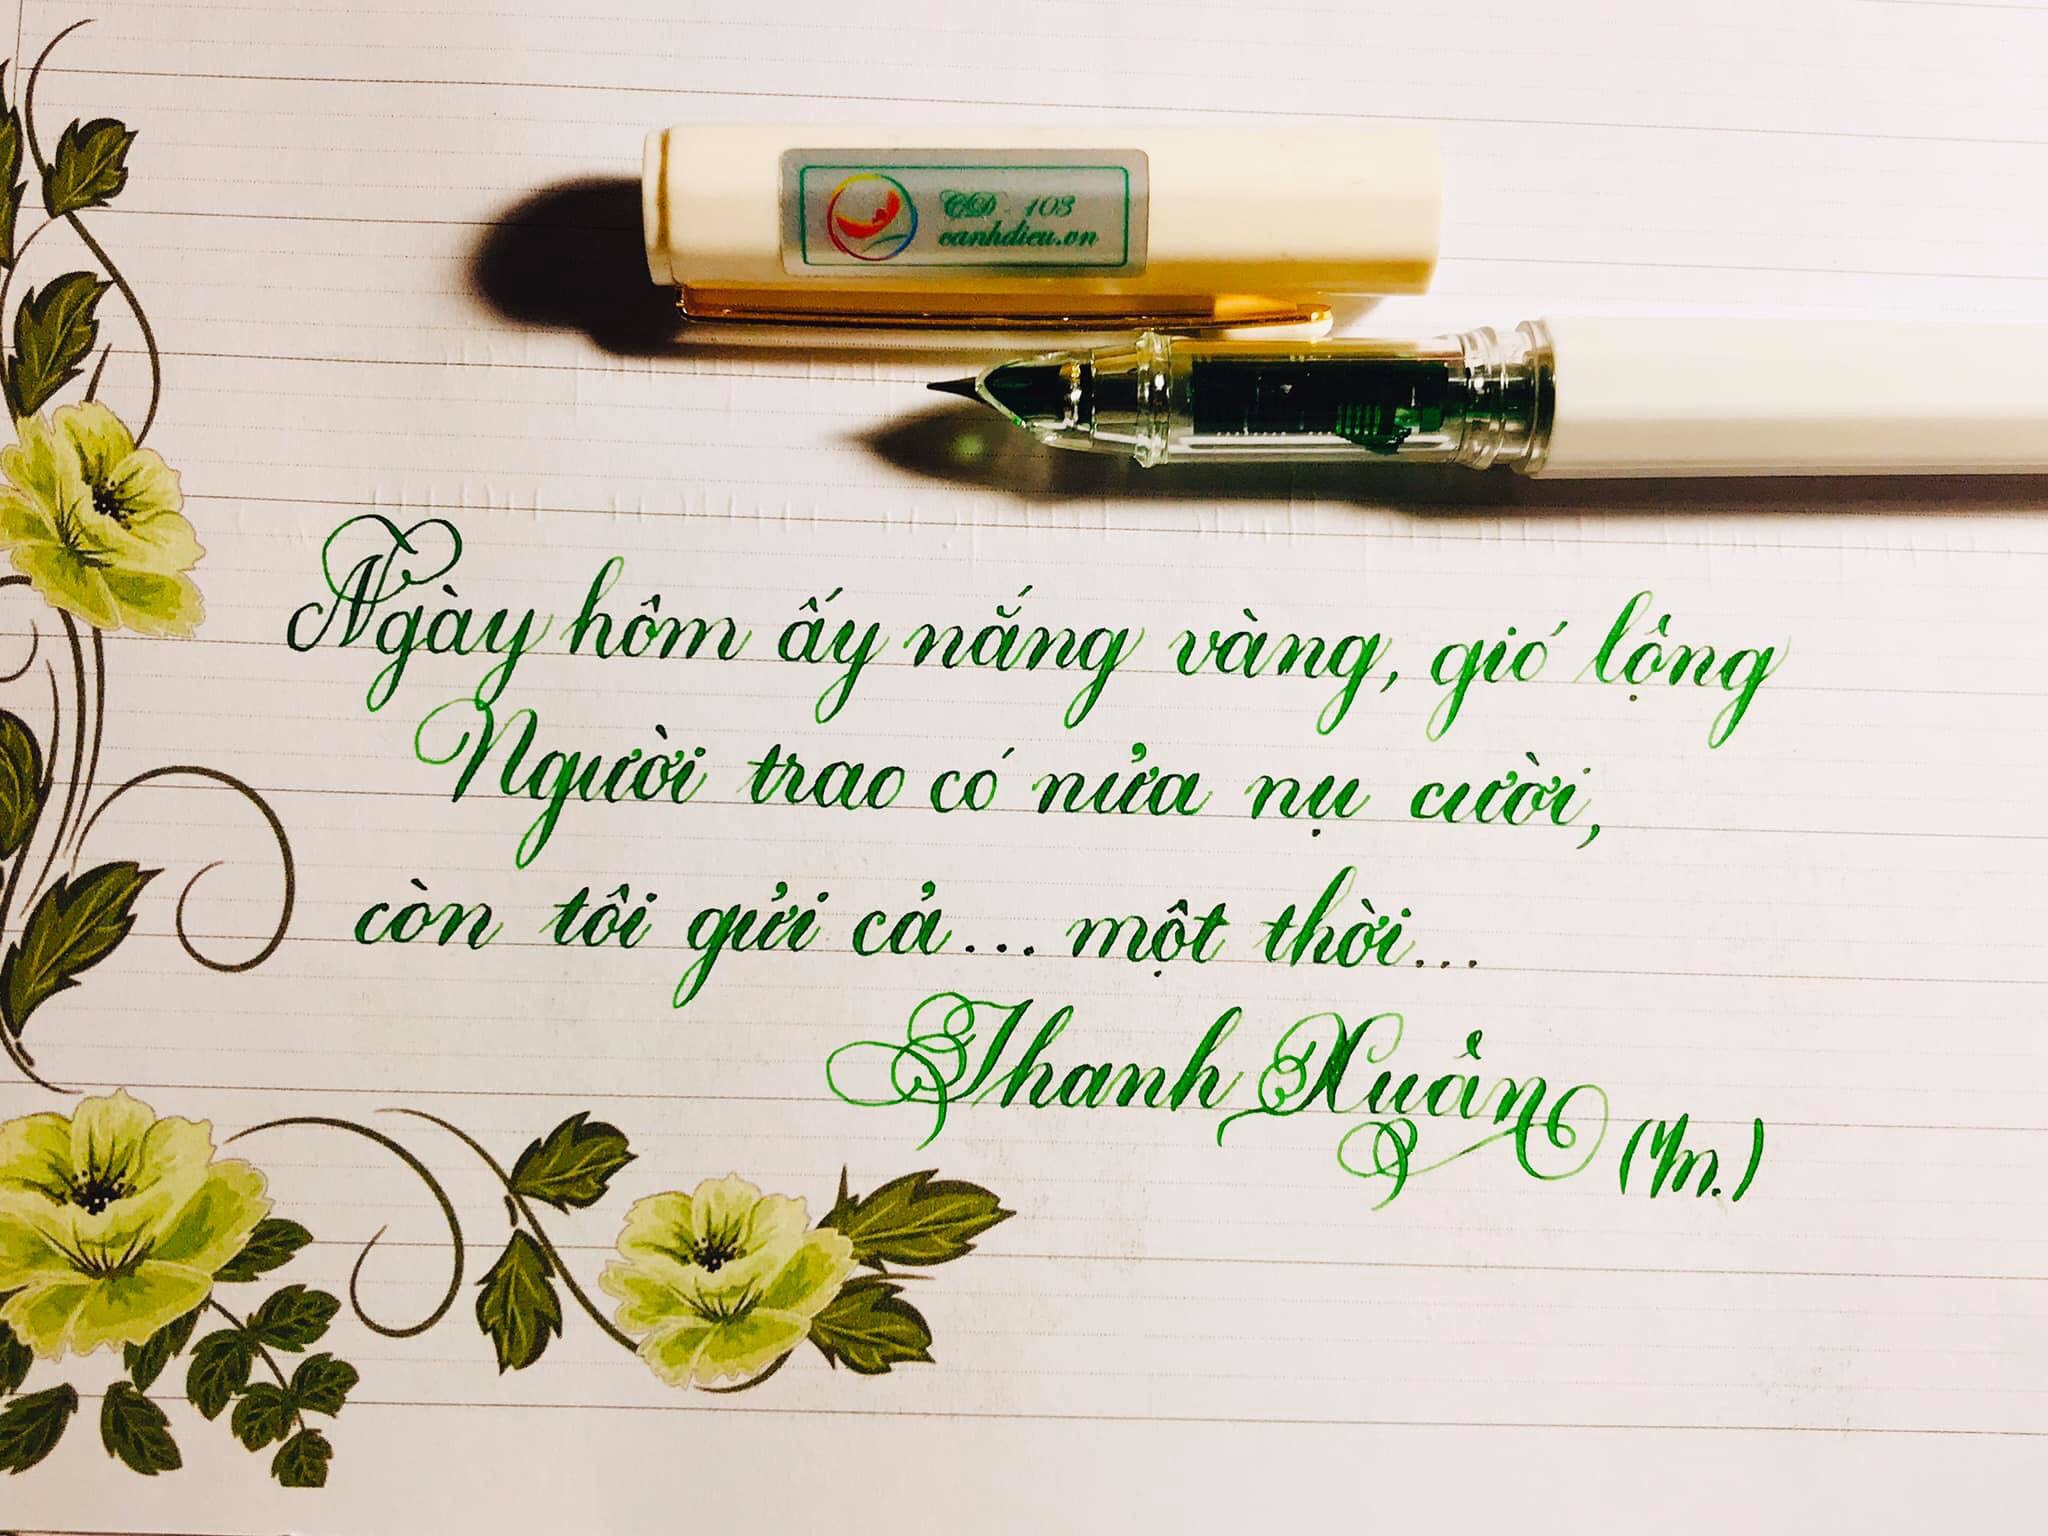 CD - 103
canhdieu.vn
Ngày hôm ấy nắng vàng, gió lộng
Người trao có nửa nụ cười,
còn tôi gửi cả... một thời...
Thanh Xuân
(M.)